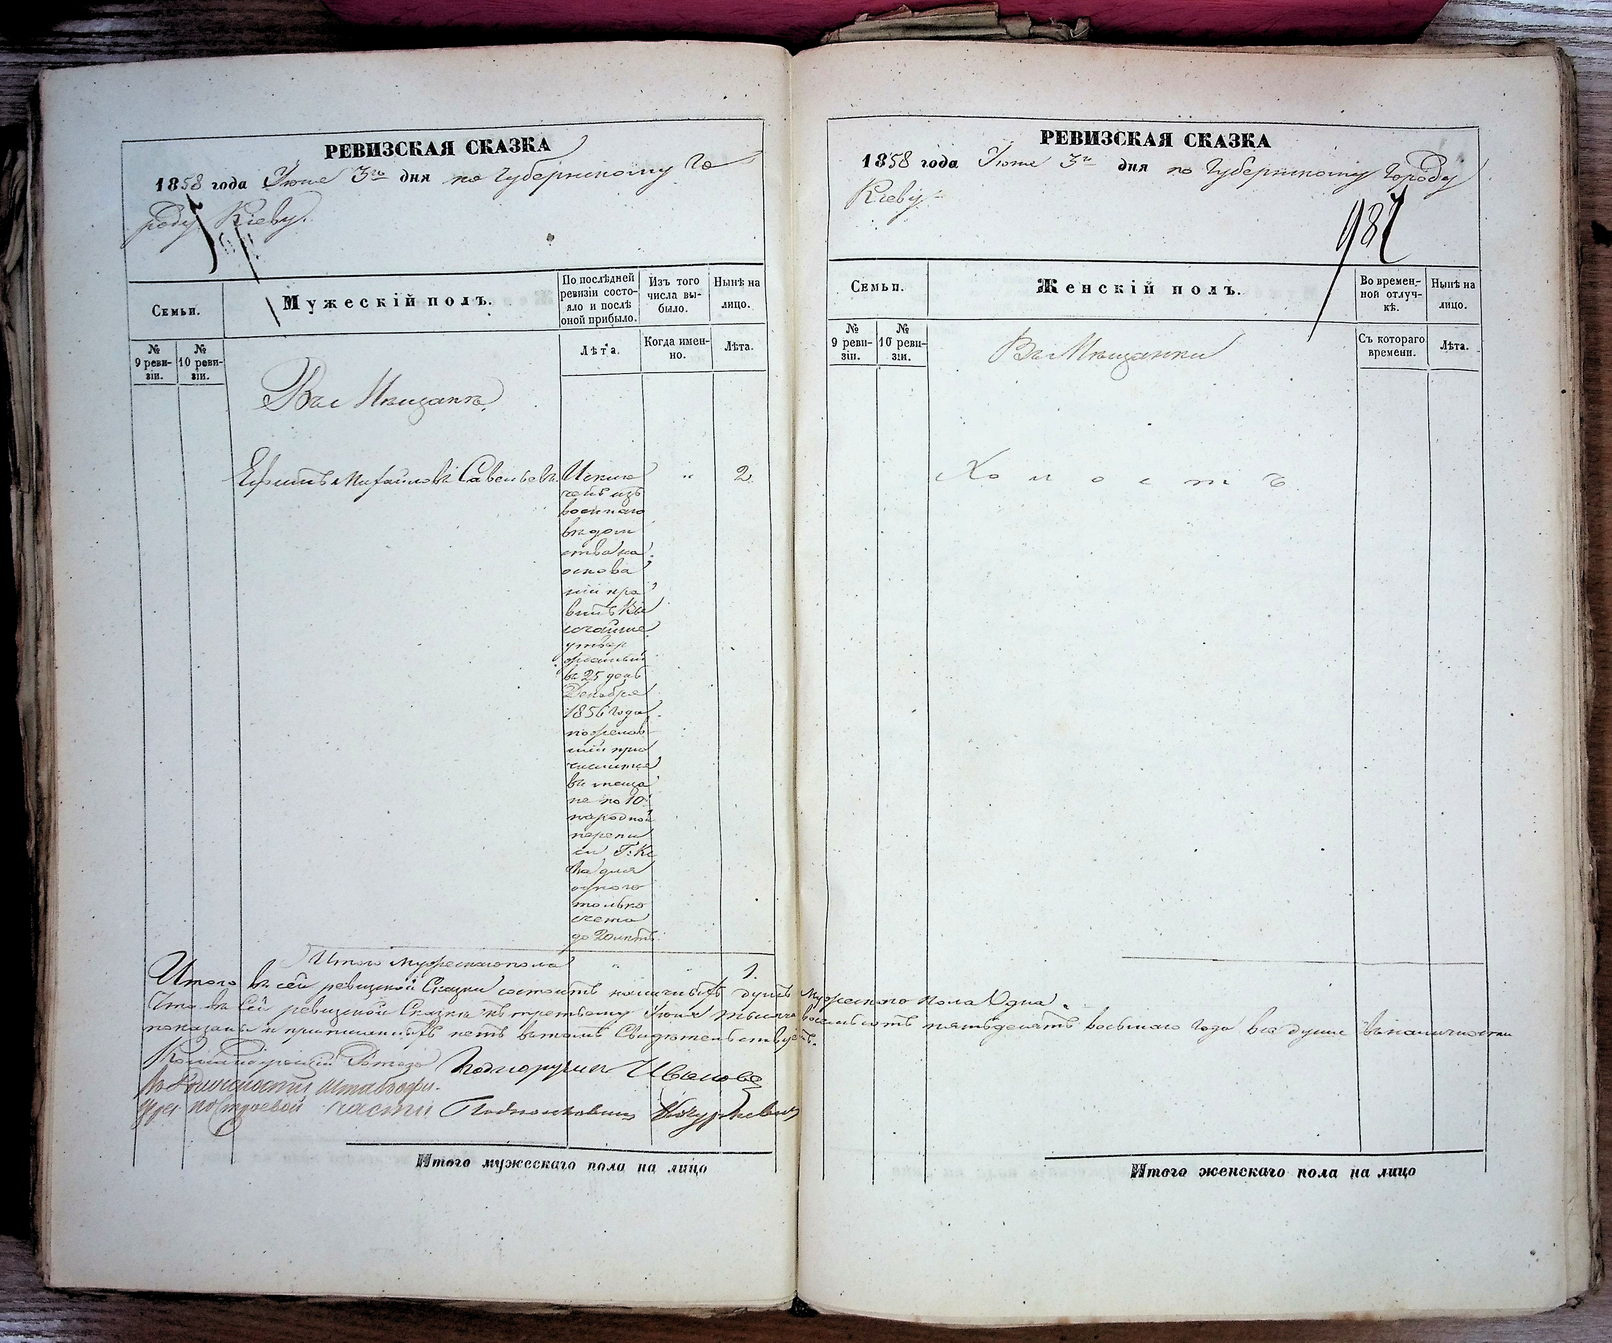 РЕВИЗСКАЯ СКАЗКА
1858 года Іюня 3го дня по Губернскому Го
роду Кіеву.
Семьи.
Мужескій полъ.
По послѣдней ревизіи состо-
яло и послѣ
оной прибыло.
Изъ того
числа вы-
было.
Нынѣ на
лицо.
№
9 реви-
зіи.
№
10 реви-
зіи.
Лѣта.
Когда имен-
но.
Лѣта.
Въ Мѣщане
Ефимъ Михайловъ Савельевъ
Исклю
ченъ изъ
военнаго
вѣдом
ства на
основа
ніи пра
вилъ Вы
сочайше
утвер
жденныхъ
въ 25 день
Декабря
1856 года,
пожелав
шій при
числится
въ меща
не по 10
народной
перепи
си Г. Кі
ева для
одного
только
счета
до 20 лѣтъ.
"
2
Итого мужескаго пола " " 1.
Итого въ сей ревизской Сказки состоитъ наличныхъ душъ Мужескаго пола Одна.
Что въ Сей ревизской Сказки къ третьему Іюня тысяча восемьсотъ пятьдесятъ восьмаго года все души въ наличности
показаны и прописныхъ нетъ въ томъ Свидетельствуетъ.
Командующій Ротою Подпоручикъ Ивановъ
въ Должности Штабъ офи-
цера по строевой части Подполковникъ
Итого мужескаго пола на лицо
РЕВИЗСКАЯ СКАЗКА
1858 года Іюня 3го дня по Губернскому Городу
Кіеву
987
Семьи.
Женскій полъ.
Во времен-
ной отлуч-
кѣ.
Нынѣ на
лицо.
№
9 реви-
зіи.
№
10 реви-
зіи.
Съ котораго
времени.
Лѣта.
Въ Мѣщанки
Холостъ
Итого женскаго пола на лицо